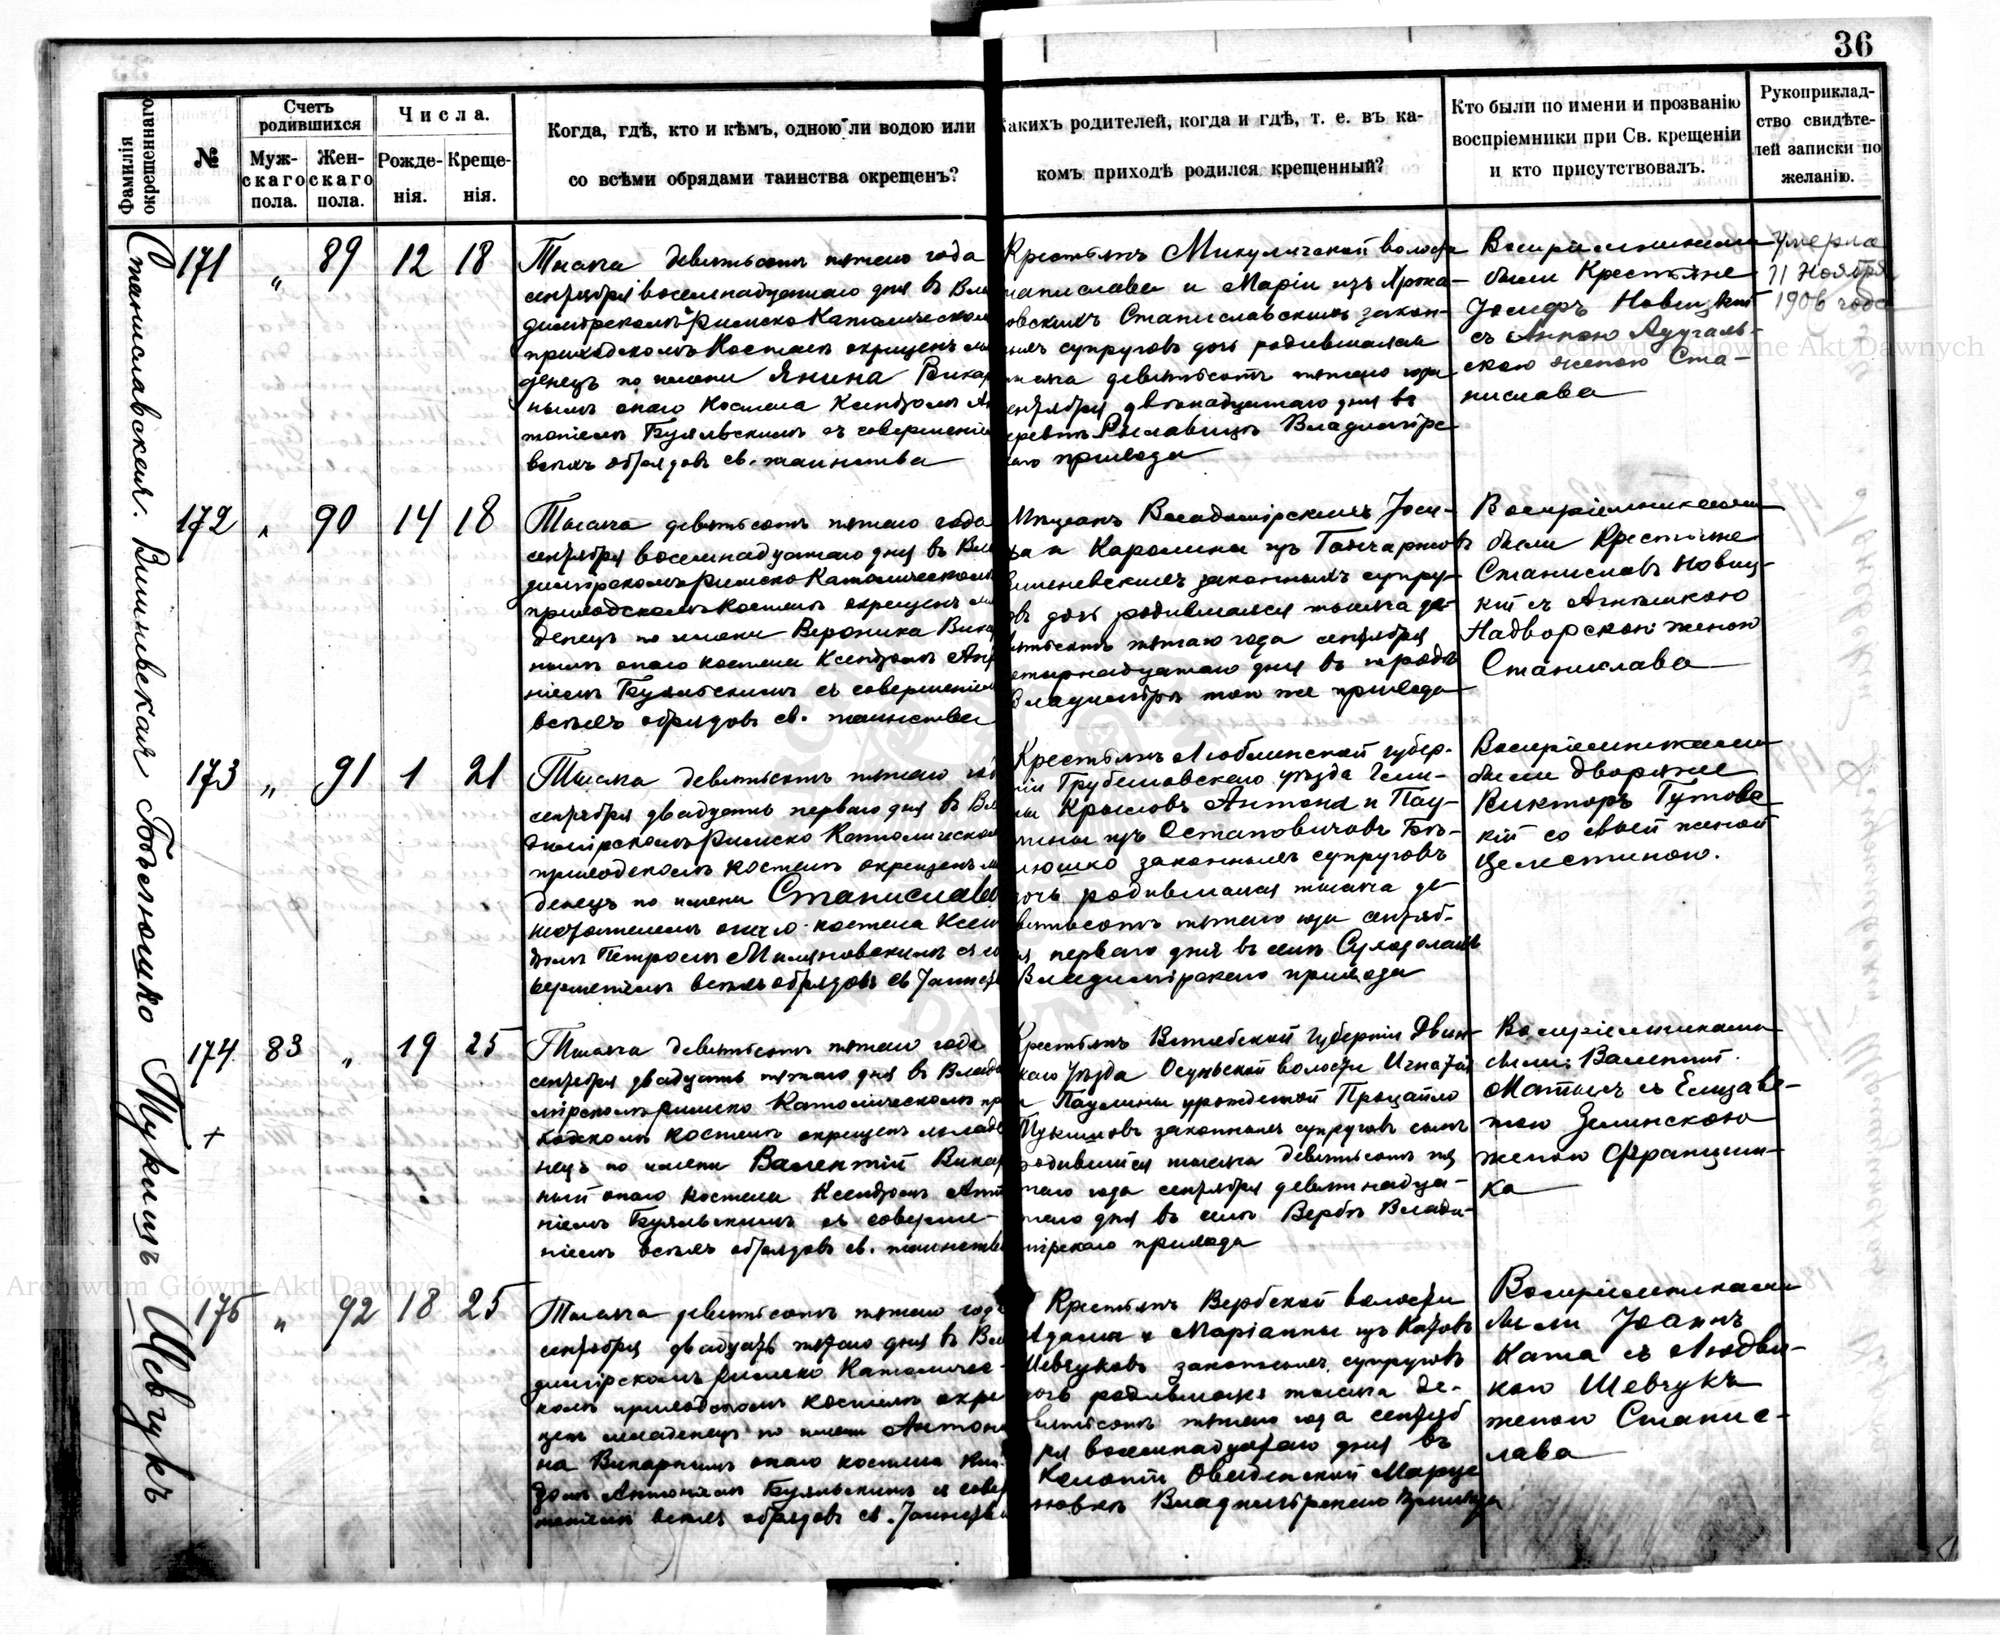 36
Фамилія окрещеннаго.
№
Счетъ родившихся
Муж-скаго пола.
Жен-скаго пола.
Числа.
Рожде-нія.
Креще-нія.
Когда, гдѣ, кто и кѣмъ, одною ли водою или
со всѣми обрядами таинства окрещенъ?
Какихъ родителей, когда и гдѣ, т. е. въ ка-
комъ приходѣ родился крещенный?
Кто были по имени и прозванію
воспріемники при Св. крещеніи
и кто присутствовалъ.
Рукоприклад-
ство свидѣте-
лей записки по
желанію.
Станиславская.
171 " 89 12 18
Тысяча девятьсотъ пятаго года
сентября восемнадцатаго дня въ Вла
димірскомъ Римско Католическомъ
приходскомъ костелѣ окрещенъ мла
денецъ по имени Янина Викар
нымъ онаго костела Ксендзомъ Ан
тоніемъ Буяльскимъ съ совершеніе
всѣхъ обрядовъ св. таинства
Крестьянъ Микуличской волости
таниславa и Маріи изъ
овскихъ Станиславскихъ закон-
ныхъ супруговъ дочь родившаяся
тысяча девятьсотъ пятаго года
ентября двѣнадцатаго дня въ
еревнѣ Владимірс
каго прихода
Воспріемниками
были Крестьяне
Іосифъ Новицкій
съ Анною
скою женою Ста-
нислава
умерла
11 Ноября
1906 года
Вишневская
172 " 90 14 18
Тысяча девятьсотъ пятаго года
сентября восемнадцатаго дня въ Вла
димірскомъ Римско Католическомъ
приходскомъ костелѣ окрещенъ мла
денецъ по имени Вероника Вика
нымъ онаго костела Ксендзомъ Анто
ніемъ Буяльскимъ съ совершеніе
всѣхъ обрядовъ св. таинства
Мѣщанъ Владимірскихъ Іоси-
фа и Каролины изъ Гончаруковъ
Вишневскихъ законныхъ супру-
овъ дочь родившаяся тысяча де-
вятьсотъ пятаго года сентября
етырнадцатаго дня въ городѣ
Владимірѣ того же прихода
Воспріемниками
были Крестьяне
Станиславъ Новиц-
кій съ Агнѣшкою
Надворской женою
Станислава
Богъюшко
173 " 91 1 21
Тысяча девятьсотъ пятаго год
сентября двадцать перваго дня въ Вла
димірскомъ Римско Католическомъ
приходскомъ костелѣ окрещенъ мла
денецъ по имени Станислава
настоятелемъ онаго костела Ксен
дзомъ Петромъ съ со
вершеніемъ всѣхъ обрядовъ св Таинств
Крестьянъ Люблинской губер-
ніи Грубешовскаго уѣзда Гми-
ны Крыловъ Антона и Пау-
лины изъ Остаповичовъ Бог-
юшко законныхъ супруговъ
дочь родившаяся тысяча де
вятьсотъ пятаго года сентяб-
ря перваго дня въ селѣ Суходолахъ
Владимірскаго прихода
Воспріемниками
были дворяне
Викторъ Гутовс
кій со своей женой
Целестиною.
Пукинъ
174 83 " 19 25
+
Тысяча девятьсотъ пятаго года
сентября двадцать пятаго дня въ Влади
мірскомъ Римско Католическомъ при
ходскомъ костелѣ окрещенъ младе
нецъ по имени Валентій Викар
ный онаго костела Ксендзомъ Анто
ніемъ Буяльскимъ съ соверше-
ніемъ всѣхъ обрядовъ св. таинства
Крестьянъ Витебской Губерніи Двин-
скаго Уѣзда Осунской волости Игнатія
и Паулины урожденной
законныхъ супруговъ сынъ
родившійся тысяча девятьсотъ пя
таго года сентября девятнадца-
таго дня въ селѣ Верба Влади-
мірскаго прихода
Воспріемниками
были: Валентій
съ Елизаве-
тою Зелинскою
женою Францишк-
ка
Шевчукъ
175 " 92 18 25
Тысяча девятьсотъ пятаго года
сентября двадцать пятаго дня въ Вла
димірскомъ Римско Католичес-
комъ приходскомъ костелѣ окре
щенъ младенецъ по имени Антони
на Викарнымъ онаго костела Ксен
дзомъ Антоніемъ Буяльскимъ съ совер
шеніемъ всѣхъ обрядовъ св. Таинства
Крестьянъ Вербской волости
Адама и Маріанны изъ Катовъ
Шевчуковъ законныхъ супруговъ
дочь родившаяся тысяча де-
вятьсотъ пятаго года сентяб
ря восемнадцатаго дня въ
Колоніи Марус
новка Владимірскаго прихода
Воспріемниками
были Іоаннъ
Ката съ Людви-
кою Шевчукъ
женою Станис-
лава
Archiwum Główne Akt Dawnych
Archiwum Główne Akt Dawnych